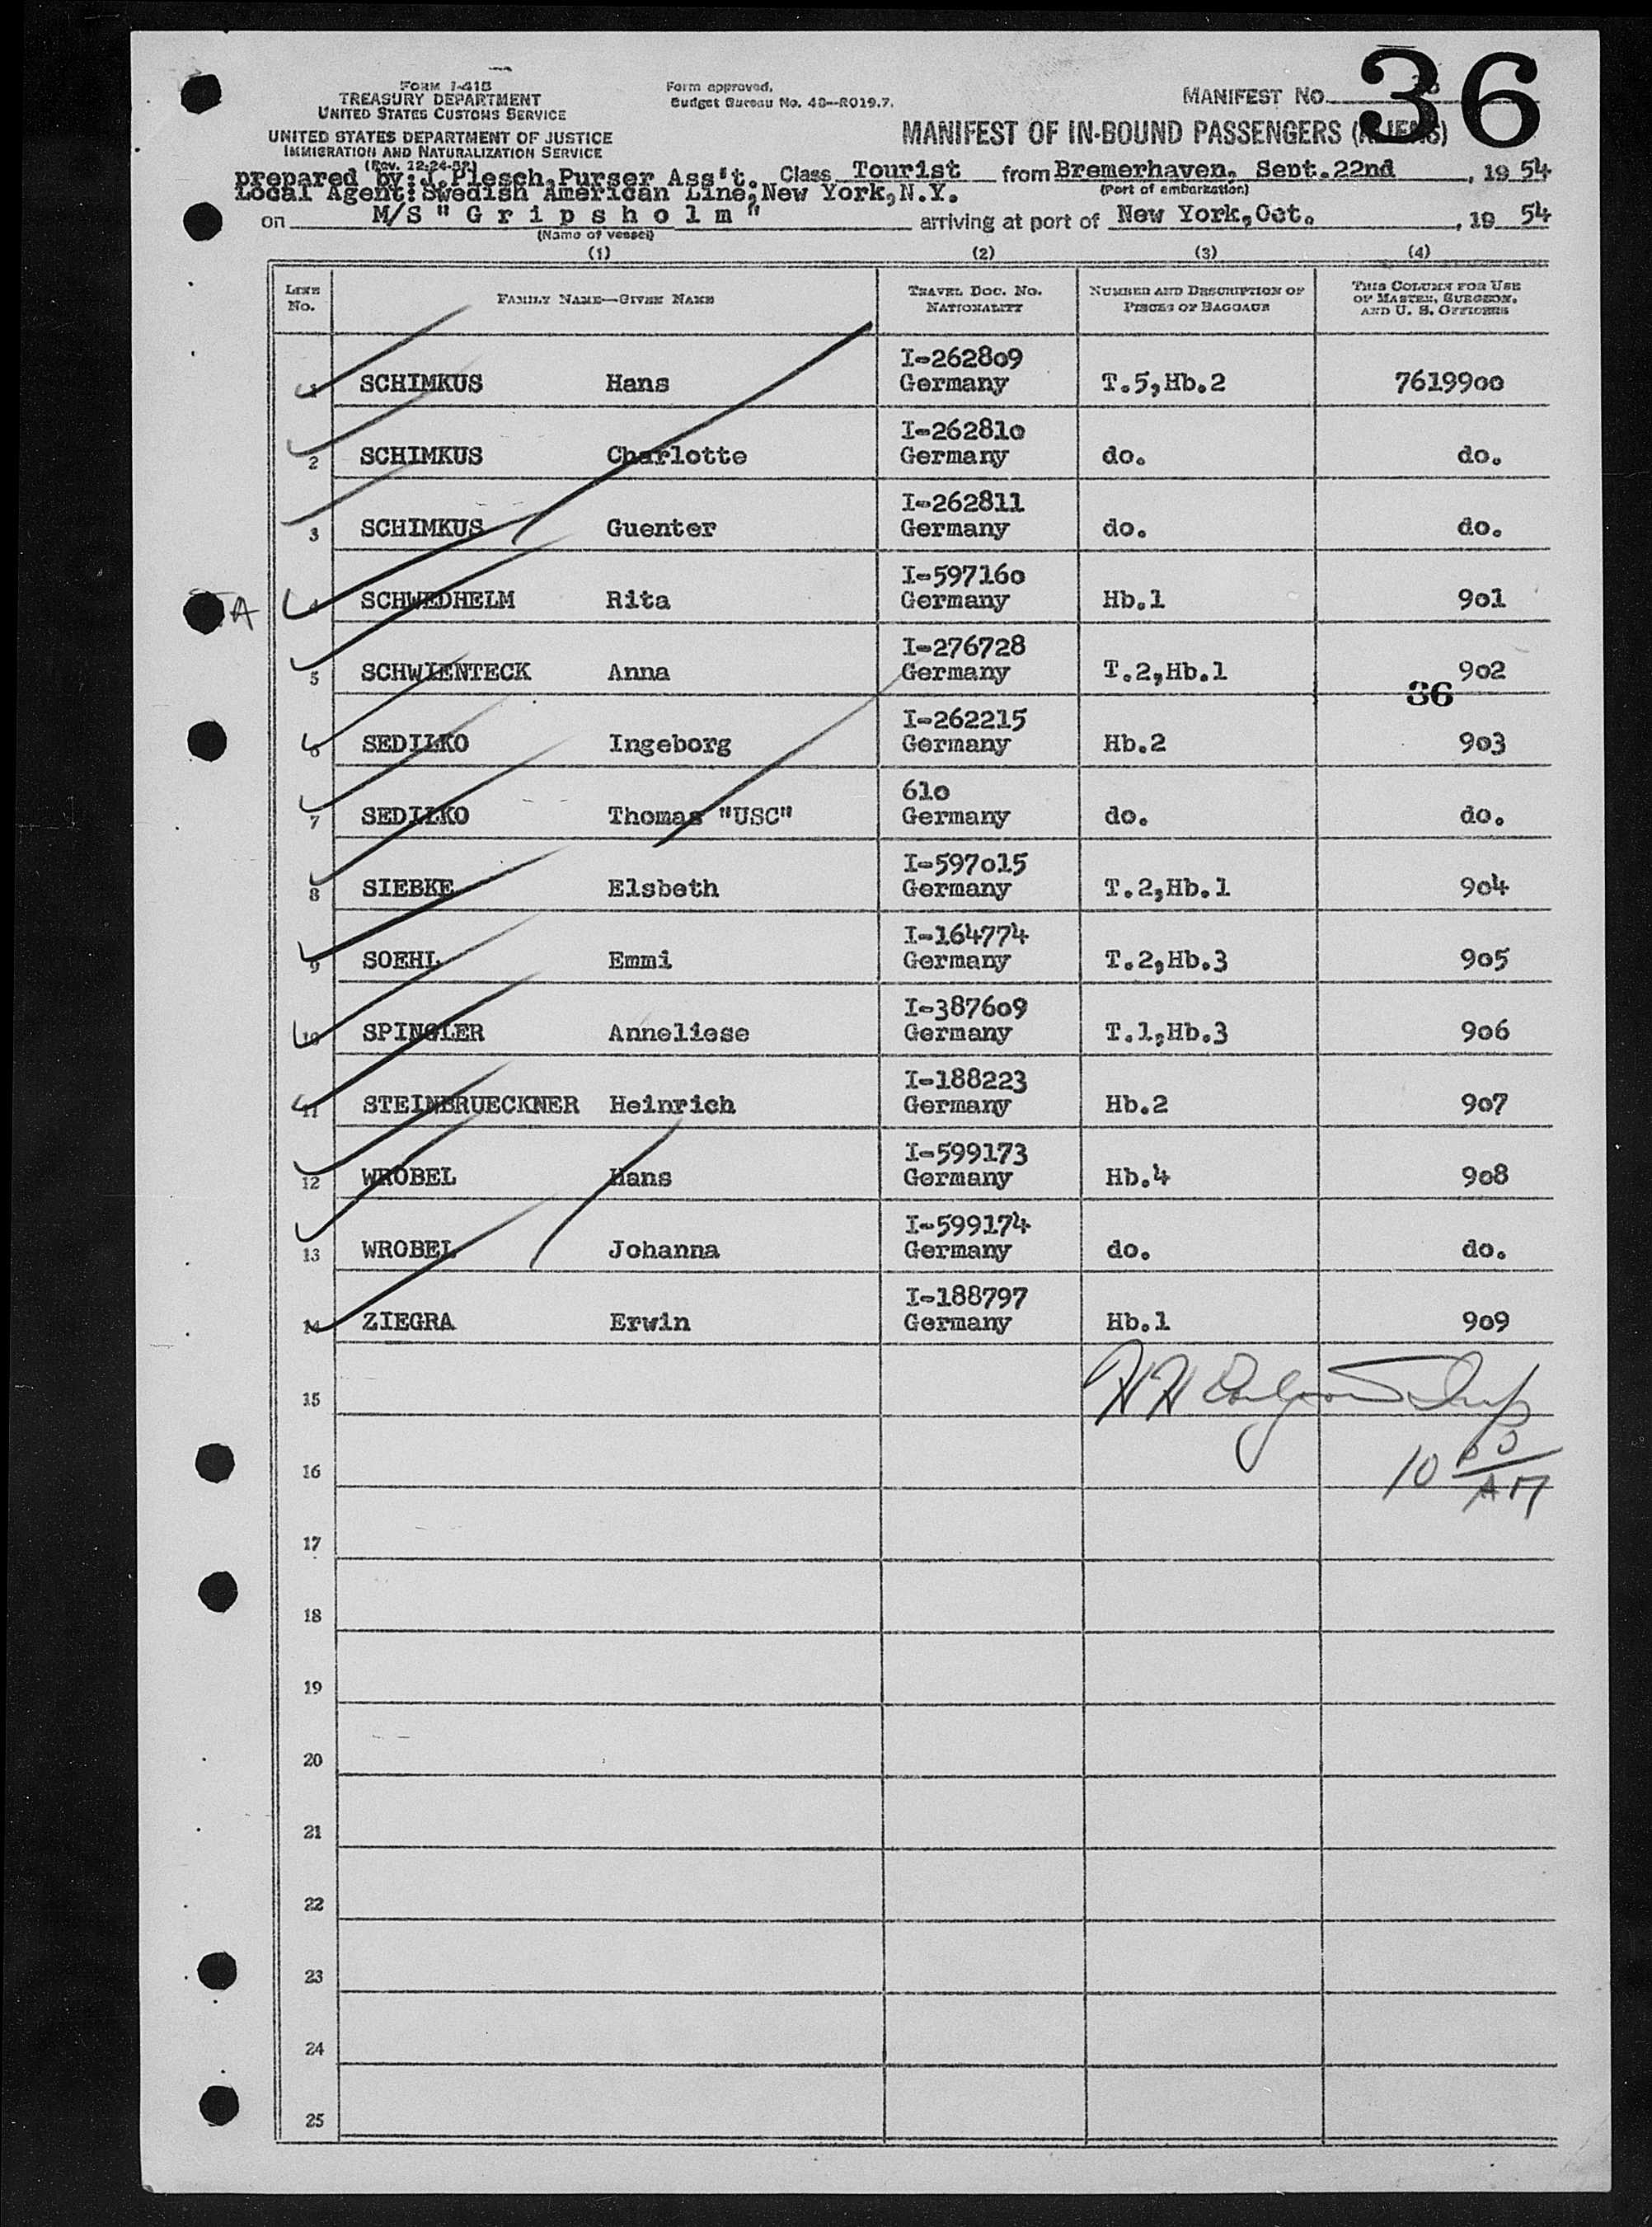 36
FORM I-418
TREASURY DEPARTMENT
UNITED STATES CUSTOMS SERVICE
UNITED STATES DEPARTMENT OF JUSTICE
IMMIGRATION AND NATURALIZATION SERVICE
(Rev. 12-24-52)
Form approved.
Budget Bureau No. 43--R019.7.
MANIFEST NO.
MANIFEST OF IN-BOUND PASSENGERS (ALIENS)
prepared by: J.Plesch, Purser Ass't. Class Tourist from Bremerhaven, Sept.22nd, 19 54
(Port of embarkation)
Local Agent: Swedish American Line, New York, N.Y.
on M/S " G r i p s h o l m " arriving at port of New York, Oct., 19 54
(Name of vessel)
(1) (2) (3) (4)
LINE NO. FAMILY NAME—GIVEN NAME TRAVEL DOC. NO. NATIONALITY NUMBER AND DESCRIPTION OF PIECES OF BAGGAGE THIS COLUMN FOR USE OF MASTER, SURGEON, AND U. S. OFFICERS
I-262809
1 SCHIMKUS Hans Germany T.5,Hb.2 7619900
I-262810
2 SCHIMKUS Charlotte Germany do. do.
I-262811
3 SCHIMKUS Guenter Germany do. do.
I-597160
A 4 SCHWEDHELM Rita Germany Hb.1 901
I-276728
5 SCHWIENTECK Anna Germany T.2,Hb.1 902
36
I-262215
6 SEDILKO Ingeborg Germany Hb.2 903
610
7 SEDILKO Thomas "USC" Germany do. do.
I-597015
8 SIEBKE Elsbeth Germany T.2,Hb.1 904
I-164774
9 SOEHL Emmi Germany T.2,Hb.3 905
I-387609
10 SPINGLER Anneliese Germany T.1,Hb.3 906
I-188223
11 STEINBRUECKNER Heinrich Germany Hb.2 907
I-599173
12 WROBEL Hans Germany Hb.4 908
I-599174
13 WROBEL Johanna Germany do. do.
I-188797
14 ZIEGRA Erwin Germany Hb.1 909
15
16 10 AM
17
18
19
20
21
22
23
24
25